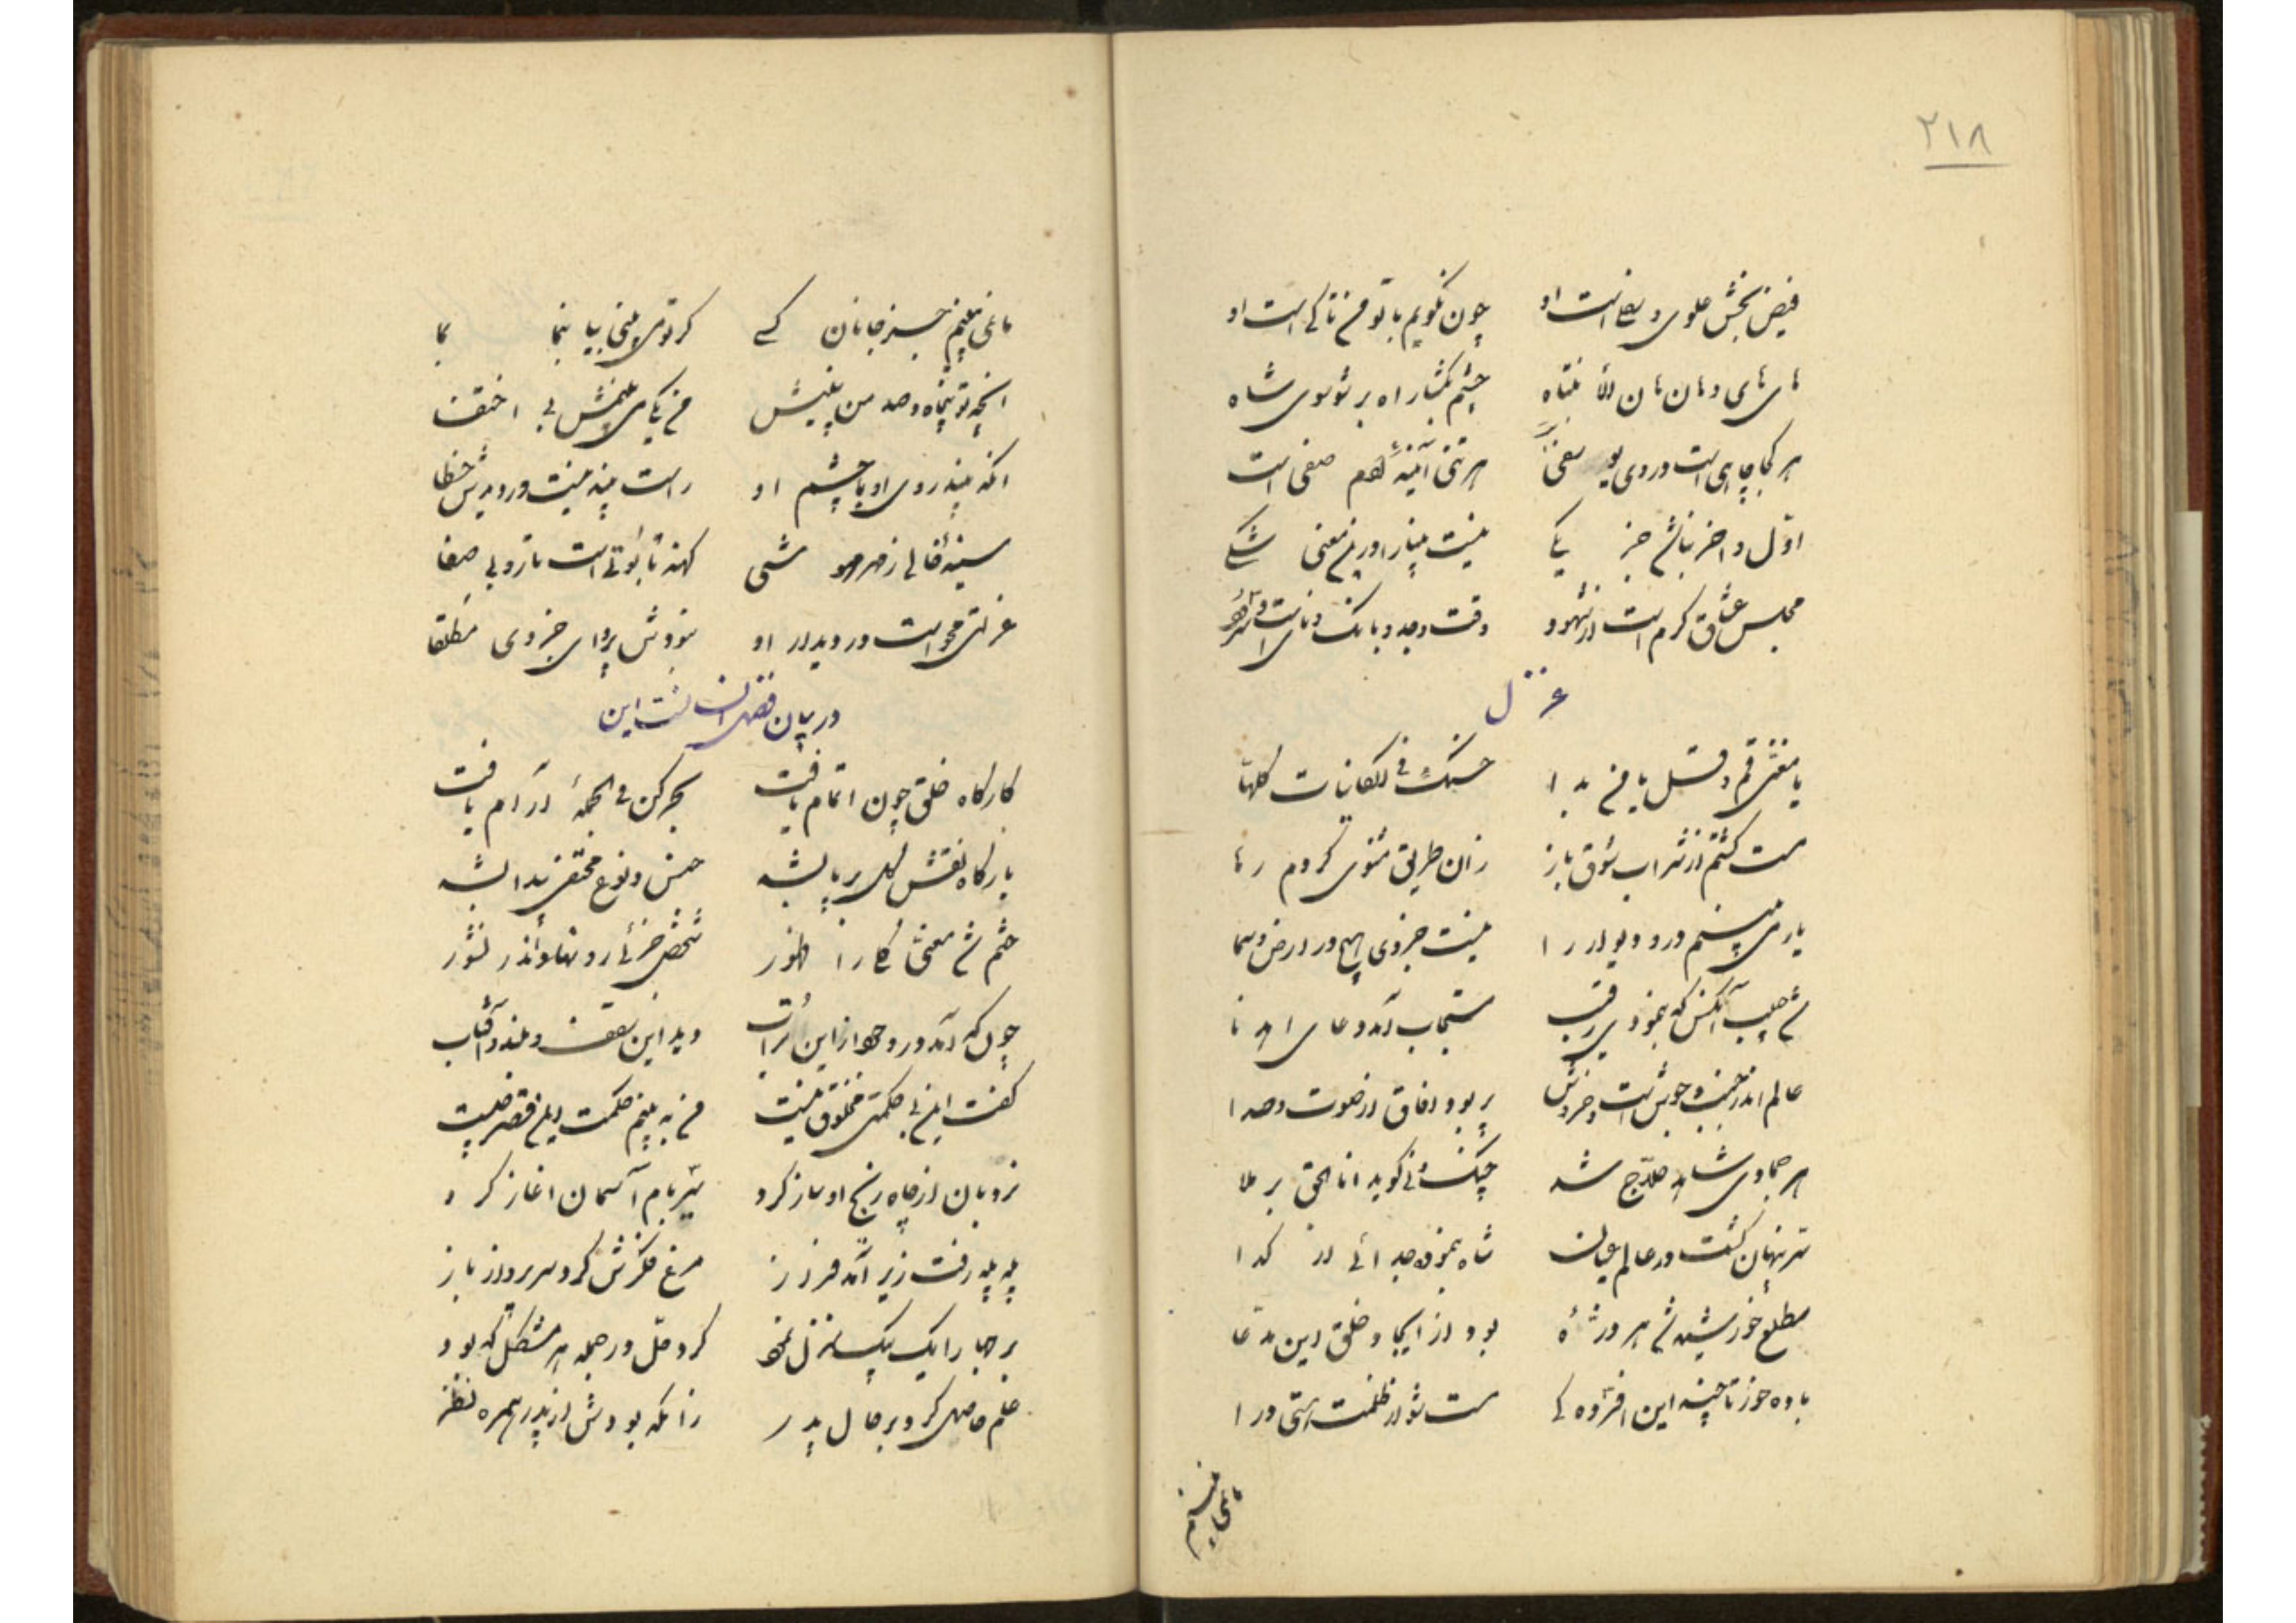 ۲۱۸
فیض بخش علوی و سفلی است او چون نگویم با تو من تا کی است او
های های و هان هان الا نتباه چشم بگشا راه بر تو سوی شاه
هر کجا چاهی است در وی یوسفی هر تنی آئینه صفی است
اول و اخر نباشد جز یکی نیست بینا را در این معنی شکی
مجلس عشاق گرم است از شهود وقت وجد و بانک و نای است و سرود
غزل
یا مغنی قم و قل یا من بدا حسنک فی الکاینات کلها
مست گشتم از شراب شوق باز زان طریق مثنوی کردم رها
یار می بینم در و دیوار را نیست جز وی هیچ در ارض و سما
شد حبیب آنکس که بنمودی رقیب مستجاب آمد دعای
عالم اندر جنب و جوش است و خروش پر بود افاق از صوت و صدا
هر جمادی شاهد حلاج شد چنک و نی گوید انا الحق بر ملا
سر پنهان گشت در عالم عیان شاه بنمود جدائی از گدا
مطلع خورشید شد هر ذره‌ٔ بود از ایجاد خلق این مدعا
باده خور تا چند این افسرده کی مست شو از ظلمت هستی درا
ما نمی بینیم
ما نمی بینیم جز جانان کسی گر توی بینی بیا بنما بما
آنچه تو پنجاه و صد من بینمش من یکی می بینمش بی اختفا
آنکه بیند روی او با چشم او راست بیند نیست در دیدش خطا
سینهٔ خالی ز مهر مه وشی کهنه تابوتی است تار و بی صفا
غرلتی محو است در دیدار او نبودش پروای جز وی مطلقا
در بیان فضل انسانست این
کارگاه خلق چون اتمام یافت بحر کن فی الجمله آرام یافت
بارگاه نقش کل بر پا بشد جنس و نوع مختفی پیدا بشد
ختم شد معنی کلی را ظهور شخص جزئی رو نهاد اندر نشور
چون که آمد در وجود از این تراب دید این سقف و بلند و آفتاب
گفت این بی حکمتی مخلوق نیست من به بینم حکمت این قصر چیست
نردبان از چاه رنج او ساز کرد سیر بام آسمان آغاز کرد
پله پله رفت زیر آمد فراز مرغ فکرش کرد سر پرواز باز
بر جهان را یک بیک منزل نمود کرد حل در جمله هر مشکل که بود
علم حاصل کرد بر حال پدر زانکه بودش از پدر بهره نظر